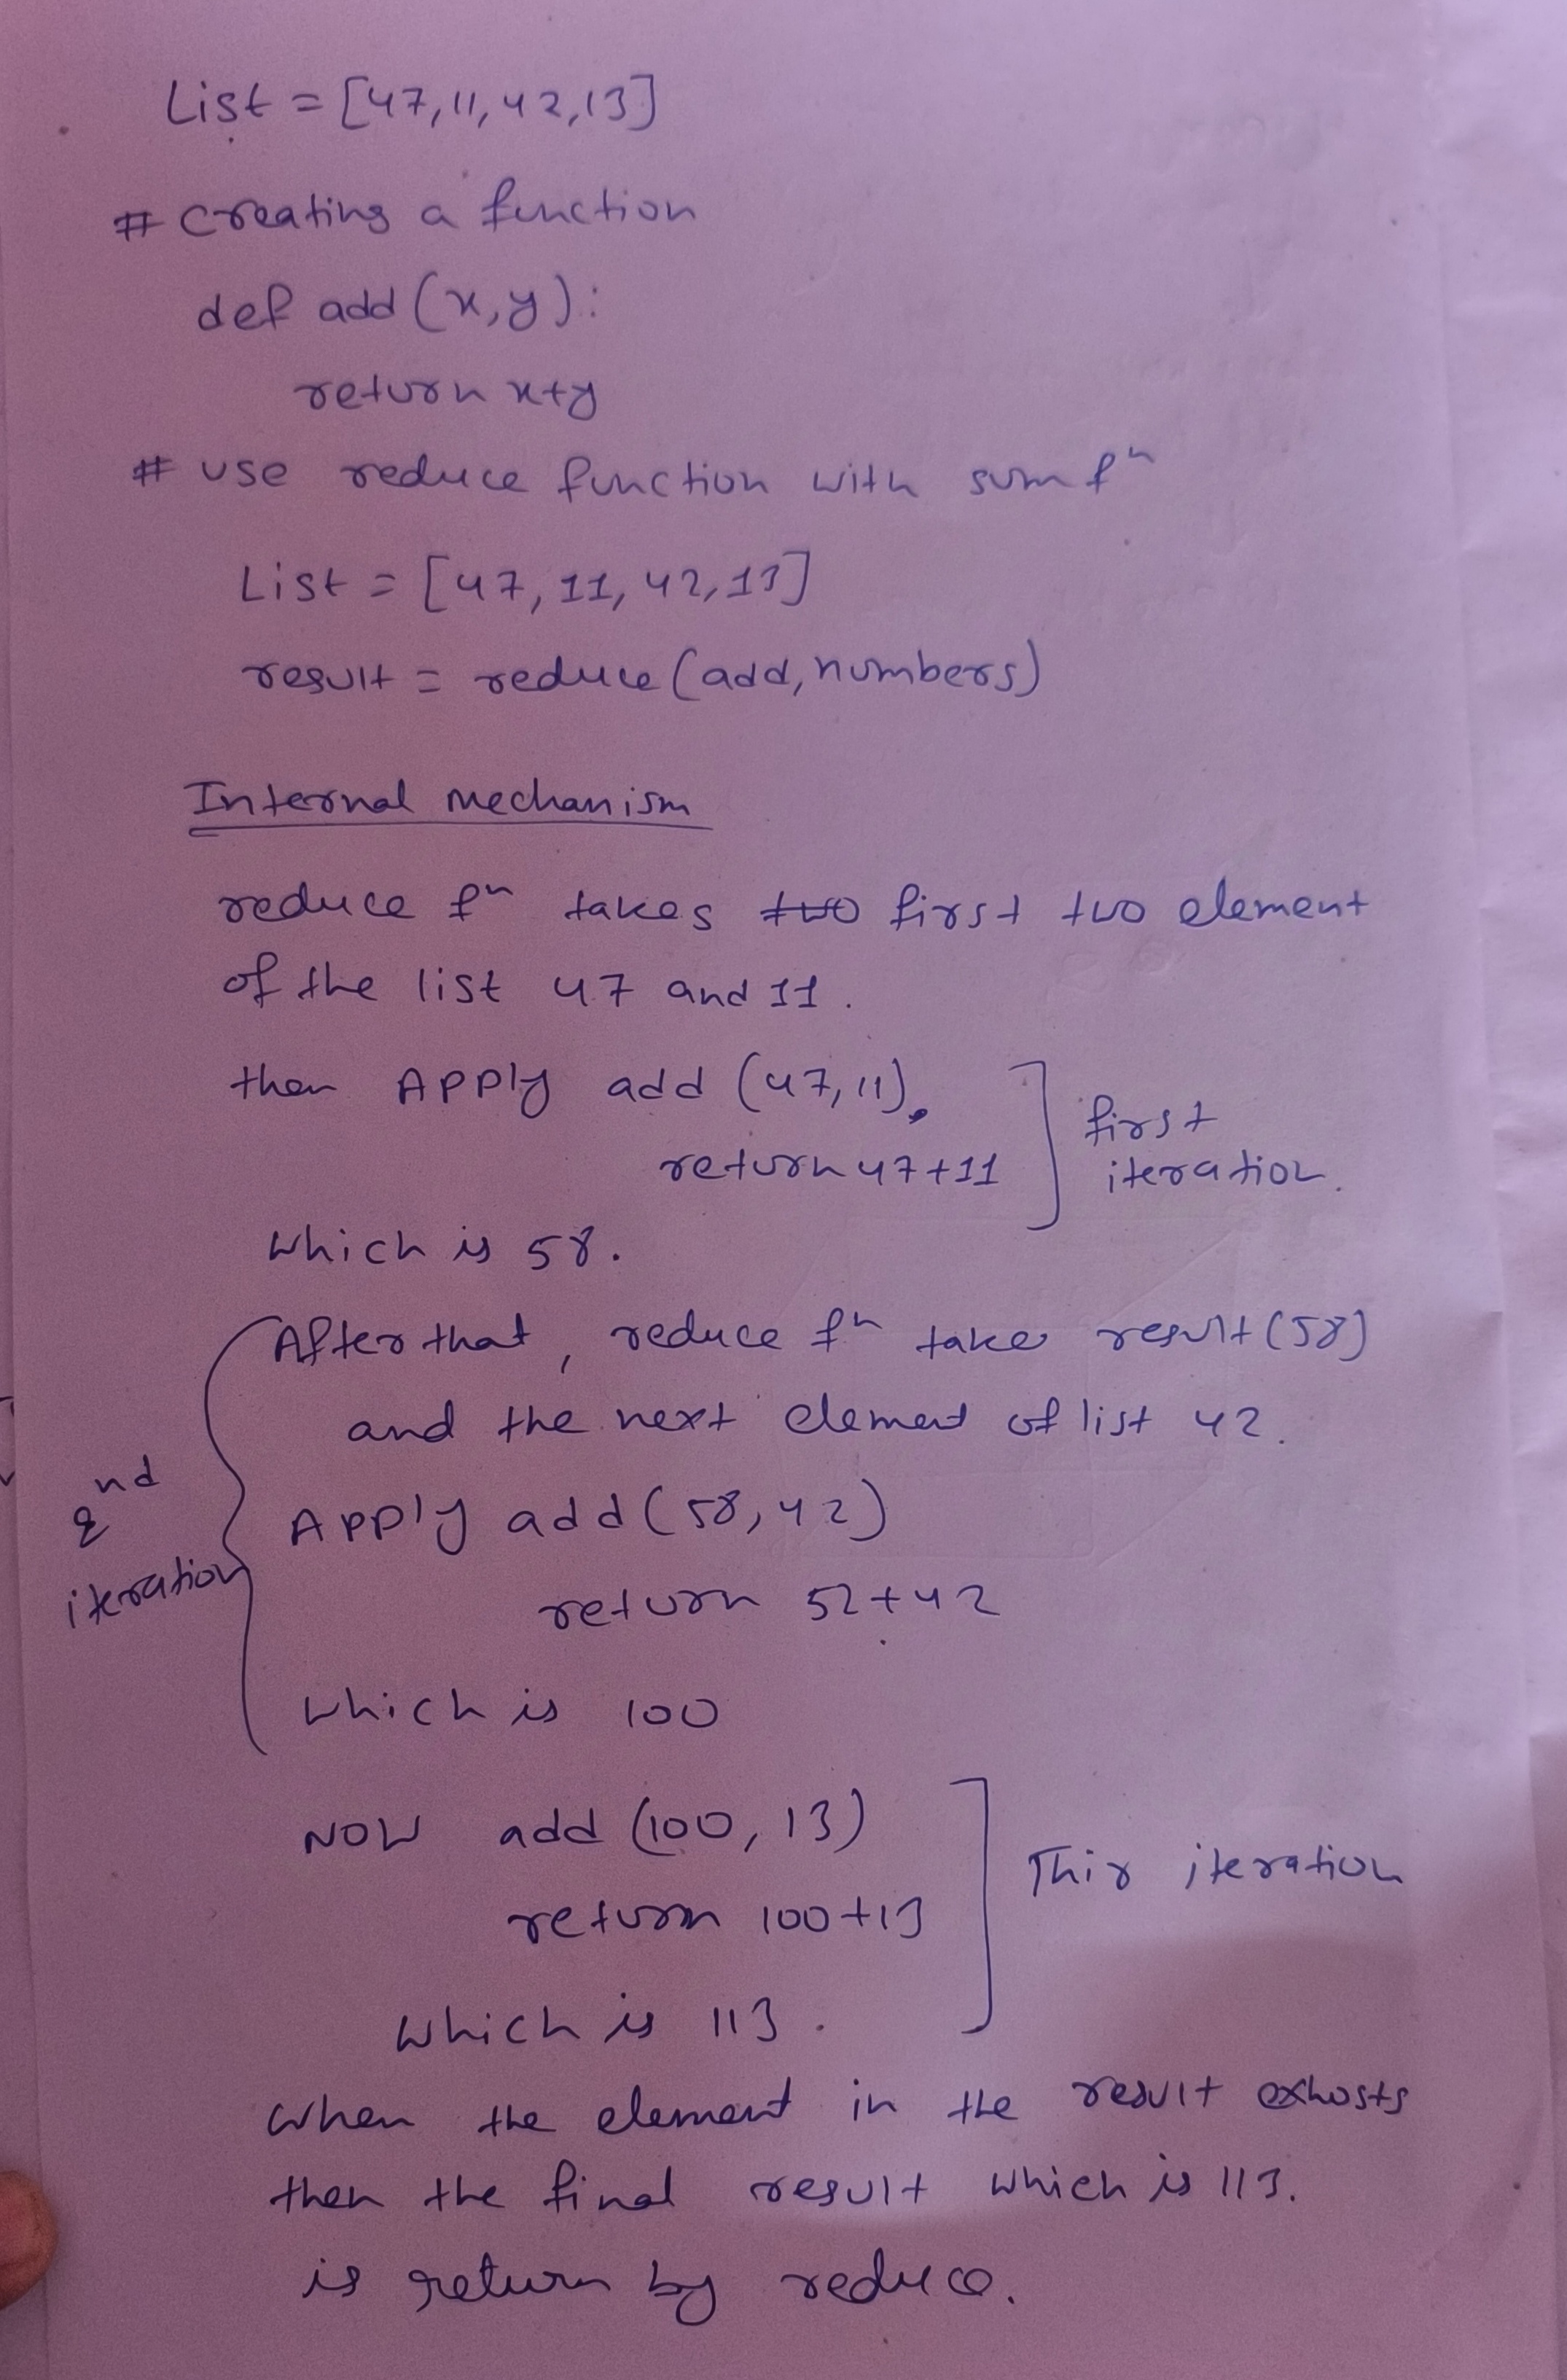 List = [47,11,42,13]
# Creating a function
def add (x,y):
return x+y
# use reduce function with sum fn
List = [47, 11, 42, 13]
result = reduce (add, numbers)
Internal Mechanism
reduce fn takes two first two element
of the list 47 and 11.
then Apply add (47, 11),
return 47+11
first
iteration.
which is 58.
After that, reduce fn take result (58)
and the next element of list 42.
2nd
iteration
Apply add (58, 42)
return 52+42
which is 100
NOW add (100, 13)
return 100+13
Thir iteration
which is 113.
when the element in the result exhosts
then the final result which is 113.
is return by reduce.